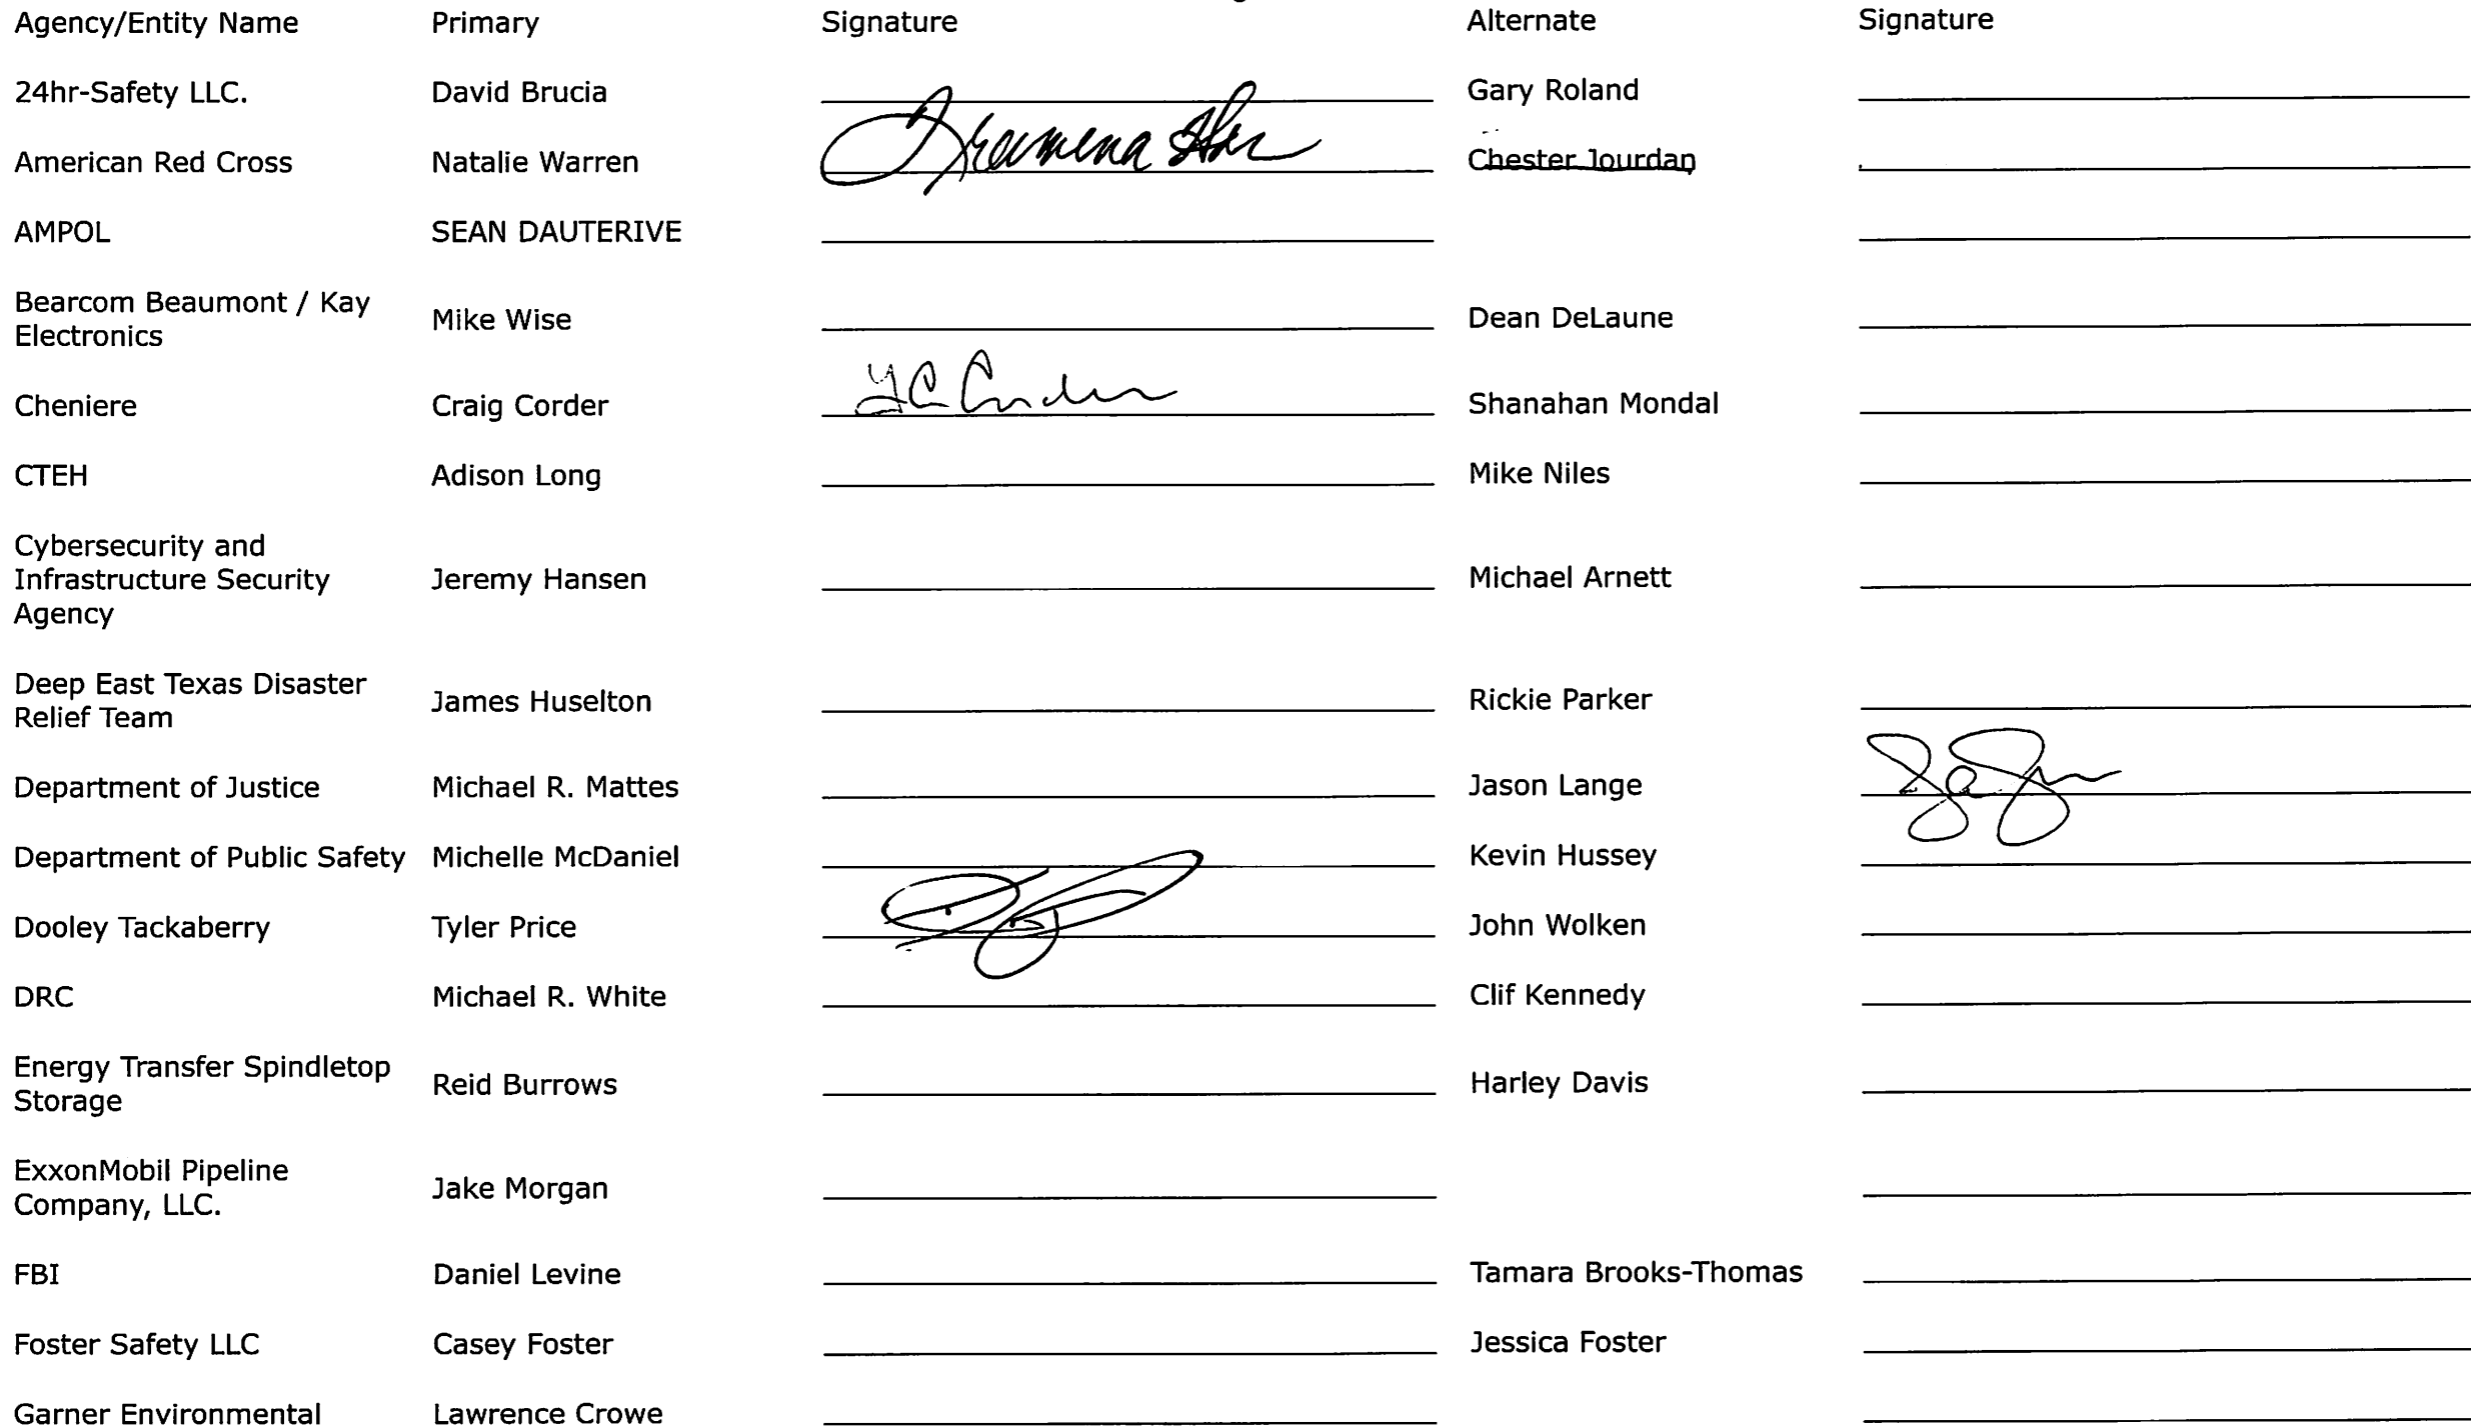 Agency/Entity Name Primary Signature Alternate Signature
24hr-Safety LLC. David Brucia Gary Roland
American Red Cross Natalie Warren Chester Jourdan
AMPOL SEAN DAUTERIVE
Bearcom Beaumont / Kay
Electronics Mike Wise Dean DeLaune
Cheniere Craig Corder Corder Shanahan Mondal
CTEH Adison Long Mike Niles
Cybersecurity and
Infrastructure Security Jeremy Hansen Michael Arnett
Agency
Deep East Texas Disaster
Relief Team James Huselton Rickie Parker
Department of Justice Michael R. Mattes Jason Lange
Department of Public Safety Michelle McDaniel Kevin Hussey
Dooley Tackaberry Tyler Price John Wolken
DRC Michael R. White Clif Kennedy
Energy Transfer Spindletop
Storage Reid Burrows Harley Davis
ExxonMobil Pipeline
Company, LLC. Jake Morgan
FBI Daniel Levine Tamara Brooks-Thomas
Foster Safety LLC Casey Foster Jessica Foster
Garner Environmental Lawrence Crowe